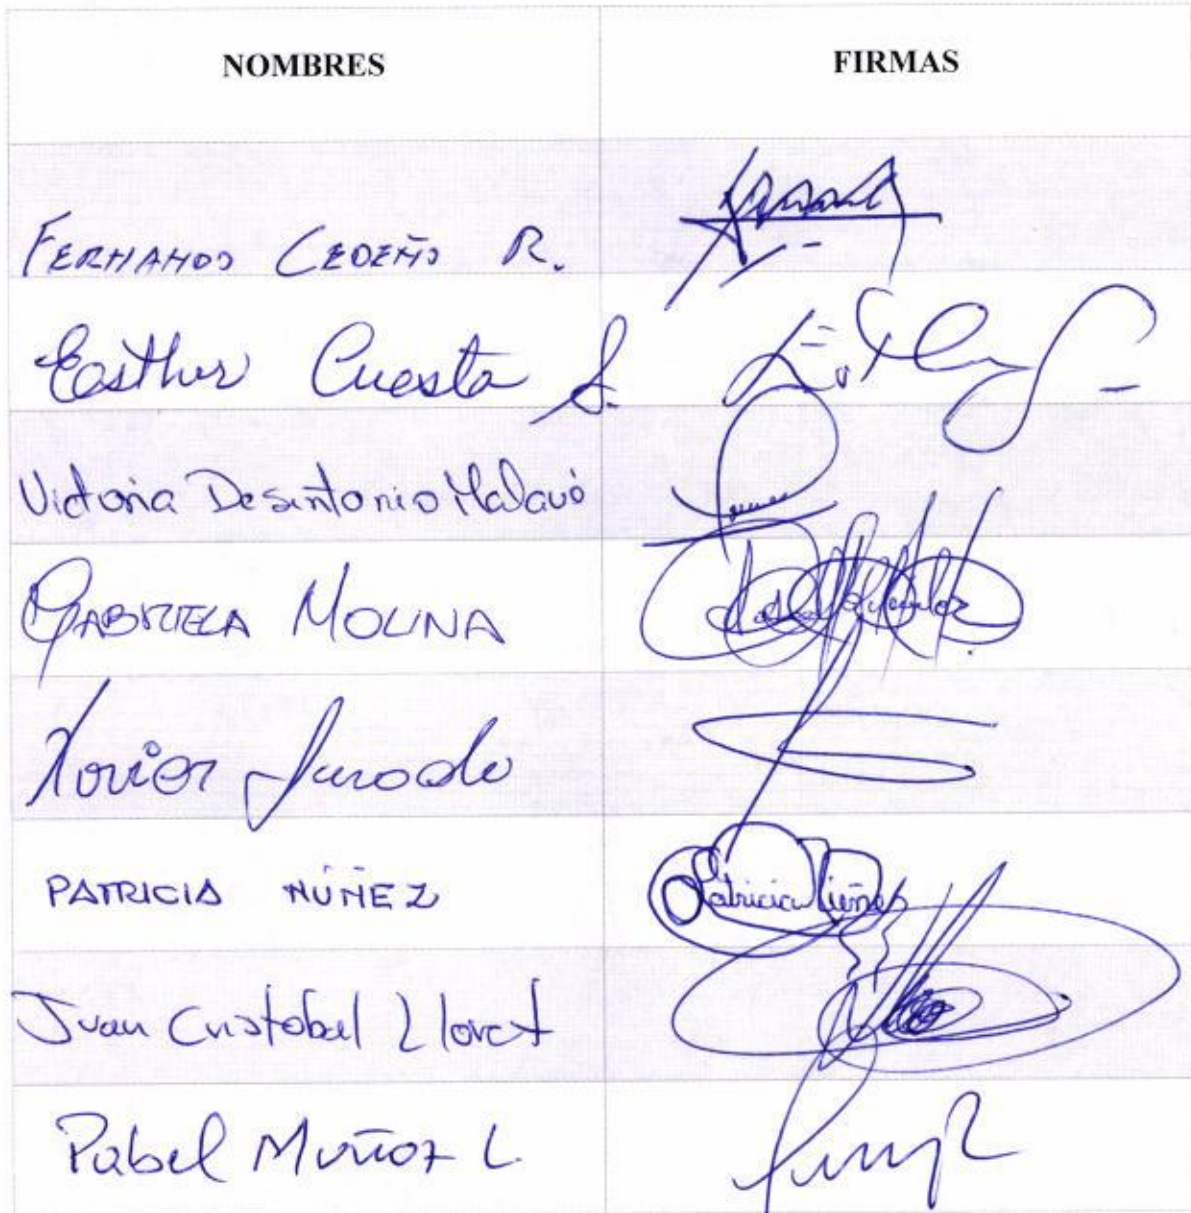 NOMBRES FIRMAS
FERNANDO CEDEÑO R.
Esther Cuesta S.
Victoria Desintonio Malavé
GABRIELA MOLINA
Xavier Jurado
PATRICIA NÚÑEZ Patricia Núñez
Juan Cristobal Lloret
Pabel Muñoz L.